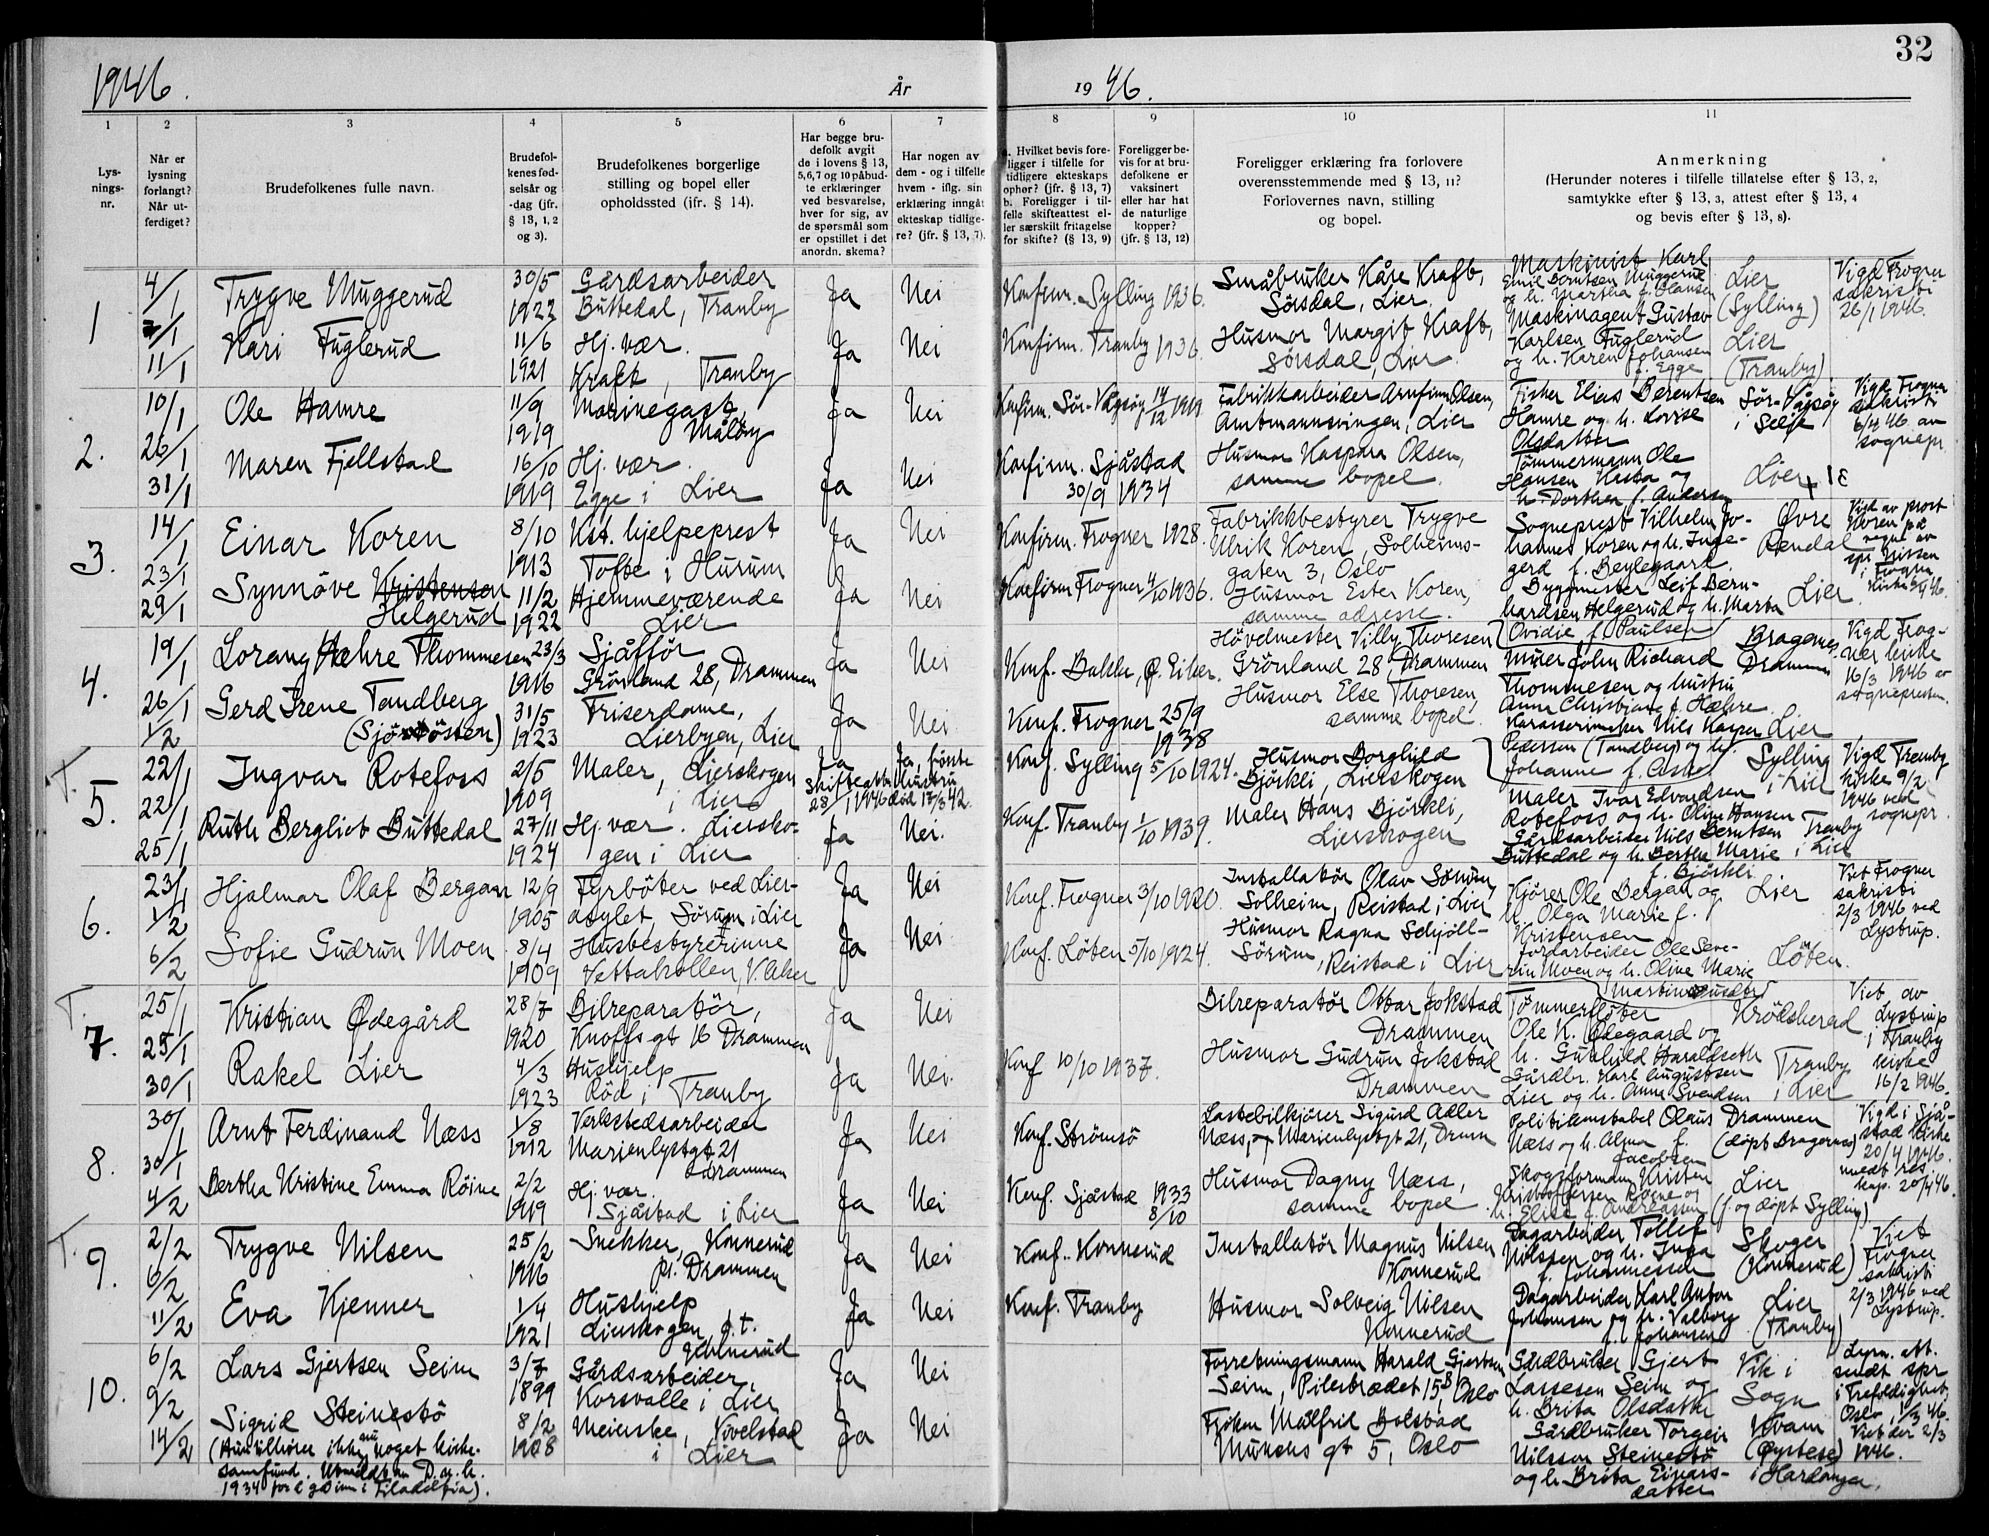 1946.
År
19 46.
32
1
2
3
4
5
6
7
8
9
10
11
Lys-
nings-
nr.
Når er
lysning
forlangt?
Når ut-
ferdiget?
Brudefolkenes fulle navn.
Brudefol-
kenes fød-
selsår og
-dag (jfr.
§ 13, 1, 2
og 3).
Brudefolkenes borgerlige
stilling og bopel eller
opholdssted (ifr. § 14).
Har begge bru-
defolk avgit
de i lovens § 13,
5,6,7 og 10 påbud-
te erklæringer
ved besvarelse,
hver for sig, av
de spørsmål som
er opstillet i det
anordn. skema?
Har nogen av
dem - og i tilfelle
hvem - iflg. sin
erklæring inngåt
ekteskap tidlige-
re? (jfr. § 13, 7).
a. Hvilket bevis fore-
ligger i tilfelle for
tidligere ekteskaps
ophør? (jfr. § 13, 7)
b. Foreligger i til-
felle skifteattest el-
ler særskilt fritagelse
for skifte? (§ 13, 9)
Foreligger be-
vis for at bru-
defolkene er
vaksinert
eller har hat
de naturlige
kopper?
(jfr. § 13, 12)
Foreligger erklæring fra forlovere
overensstemmende med § 13, 11?
Forlovernes navn, stilling
og bopel.
Anmerkning
(Herunder noteres i tilfelle tillatelse efter § 13, 2,
samtykke efter § 13, 3, attest efter § 13, 4
og bevis efter § 13, 8).
1
4/1
11/1
Trygve Muggerud
Kari Fuglerud
30/5
1922
11/6
1921
Gårdsarbeider
Buttedal, Tranby
Hj. vær.
Kraft, Tranby
Ja
Ja
Nei
Nei
Konfirm. Sylling 1936.
Konfirm. Tranby 1936.
Småbruker Kåre Kraft,
Sørsdal, Lier.
Husmor Margit Kraft,
Sørsdal, Lier.
Maskinist Karl
Emil Berntsen Muggerud
og h. Martha f. Clausen
Maskinagent Gustav
Karlsen Fuglerud
og h. Karen Johansen
f. Egge
Lier
(Sylling)
Lier
(Tranby)
Vigd Frogner
sakristi
26/1 1946.
2.
10/1
26/1
31/1
Ole Hamre
Maren Fjellstad
11/9
1919
16/10
1919
Marinegast,
Måløy
Hj. vær.
Egge i Lier
Ja
Ja
Nei
Nei
Konfirm. Sør-Vågsøy 14/12 1919
Konfirm. Sjåstad
30/9 1934
Fabrikkarbeider Arnfinn Olsen,
Amtmannsvingen, Lier
Husmor Kaspara Olsen,
samme bopel.
Fisker Elias Berentsen
Hamre og h. Lovise
Olsdatter
Tømmermann Ole
Hansen Hasta og
h. Dorthea f. Andersen
Sør-Vågsøy
i Selje
Lier
Vigd Frogner
sakristi
6/4 46 av
sognepr.
3.
14/1
23/1
29/1
Einar Koren
Synnøve Kristensen
Helgerud
8/10
1913
11/2
1922
Kst. hjelpeprest
Tofte i Hurum
Hjemmeværende
Lier
Ja
Ja
Nei
Nei
Konfirm. Frogner 1928.
Konfirm Frogner 4/10 1936.
Fabrikkbestyrer Trygve
Ulrik Koren, Solheims-
gaten 3, Oslo
Husmor Ester Koren,
samme adresse.
Sogneprest Vilhelm Jo-
hannes Koren og h. Inge-
gerd f. Beylegaard.
Byggmester Leif Bern-
hardsen Helgerud og h. Marta
Ovidie f. Paulsen
Øvre
Rendal
Lier
Vigd av prost
Koren på
vegne av
spr. Nissen
i Frogner
4.
19/1
26/1
1/2
Lorang Hæhre Thommesen
Gerd Irene Tandberg
23/3
1916
31/5
1923
Sjåfør
Grønland 28, Drammen
Friserdame,
Lierbyen, Lier
Ja
Ja
Nei
Nei
Konf. Bakke, Ø. Eiker.
Konf. Frogner 25/9
1938
Hovedmester Villy Thoresen
Grønland 28, Drammen
Husmor Else Thoresen,
samme bopel.
Murer John Richard
Thommesen og hustru
Anna Christiane f. Hæhre.
Karosserimaker Nils Kasper
Pedersen (Tandberg) og h.
Johanne f. Aske
Bragernes,
Drammen
Lier
Vigd Frog-
ner kirke
16/3 1946 av
sognepresten.
T.
5.
22/1
22/1
25/1
Ingvar Rotefoss
Ruth Bergliot Buttedal
2/5
1909
27/11
1924
Maler, Lierskogen
i Lier
Hj. vær. Liersko-
gen i Lier
Ja
Skifteattest
28/1 1946
Ja
Ja, første
hustru
død 17/3 42.
Nei.
Konf. Sylling 5/10 1924.
Konf. Tranby 1/10 1939.
Husmor Borghild
Bjørkli, Lierskogen
Maler Hans Bjørkli,
Lierskogen
Maler Ivar Edvardsen
Rotefoss og h. Oline Hansen
Gårdsarbeider Nils Berntsen
Buttedal og h. Berthe Marie
f. Bjørkli
Sylling
i Lier
Tranby
i Lier
Vigd Tranby
kirke 9/2
1946 ved
sognepr.
6.
23/1
1/2
6/2
Hjalmar Olaf Bergan
Sofie Gudrun Moen
12/9
1905
8/4
1909
Fyrbøter ved Lier-
asylet, Sørum i Lier
Husbestyrerinne
Vettakollen, V. Aker
Ja
Ja
Nei
Nei
Konf. Frogner 3/10 1920.
Konf. Løten 5/10 1924.
Installatør Olav Sørum,
Solheim, Reistad i Lier
Husmor Ragna Schjøll-
Sørum, Reistad i Lier
Kjører Ole Bergan og
h. Olga Marie f.
Kristensen
Jordarbeider Ole Seve-
rin Moen og h. Oline Marie
Martinusdtr.
Lier
Løten.
Viet Frogner
sakristi
2/3 1946 ved
Lystrup.
T.
7.
25/1
25/1
30/1
Kristian Ødegård
Rakel Lier
28/7
1920
4/3
1923
Bilreparatør,
Knoffs gt 16 Drammen
Hushjelp
Rød i Tranby
Ja
Ja
Nei
Nei.
Konf 10/10 1937.
Bilreparatør Ottar Jokstad
Drammen
Husmor Gudrun Jokstad
Drammen
Tømmerfløter
Ole K. Ødegaard og
h. Gunhild Haraldseth
Gårdbr. Karl Augustsen
Lier og h. Anna Svendsen
Krødsherad
Tranby
i Lier
Viet av
Lystrup
i Tranby
kirke
16/2 1946.
8.
30/1
30/1
4/2
Arnt Ferdinand Næss
Bertha Kristine Emma Røine
1/8
1912
2/2
1919
Verkstedsarbeider
Marienlystgt 21
Drammen
Hj. vær.
Sjåstad i Lier
Ja
Ja
Nei
Nei
Konf. Strømsø
Konf. Sjåstad 1933
8/10
Lastebilkjører Sigurd Adler
Næss, Marienlystgt 21, Drmn
Husmor Dagny Næss,
samme bopel
Politikonstabel Olaus
Næss og h. Alma f.
Jacobsen
Skogsformann Kristen
Kristoffersen Røine og
h. Elise f. Andreassen
Drammen
(døpt Bragernes)
Lier
(f. og døpt Sylling)
Vigd i Sjå-
stad kirke
20/4 1946.
meldt res.
kap. 20/4 46.
T.
9.
2/2
6/2
11/2
Trygve Nilsen
Eva Kjenner
25/2
1916
1/4
1921
Snekker, Konnerud
pr. Drammen
Hushjelp
Lierskogen, p.t.
Konnerud
Ja
Ja
Nei
Nei
Konf. Konnerud
Konf. Tranby
Installatør Magnus Nilsen
Konnerud
Husmor Solveig Nilsen
Konnerud
Dagarbeider Tollef
Nilssen og h. Inga
f. Johannessen
Dagarbeider Karl Anton
Johansen og h. Valborg
f. Johansen
Skoger
(Konnerud)
Lier
(Tranby)
Viet
Frogner
sakristi
2/3 1946 ved
Lystrup.
10.
6/2
9/2
14/2
Lars Gjertsen Seim
Sigrid Steinestø
(Hun tilhører ikke nu noget kirke-
samfund. Utmeldt av D. n. k.
1934
3/7
1899
8/2
1908
Gårdsarbeider
Korsvalle i Lier
Meierske, Nivelstad
i Lier
Ja
Ja
Nei
Nei
Forretningsmann Harald Gjertsen
Seim, Pilestrædet 15B, Oslo
Frøken Målfrid Bolstad
Munchs gt 5, Oslo
Gårdbruker Gjert
Lassesen Seim og
h. Brita Olsdatter
Gårdbruker Torgeir
Nilsson Steinestø
og h. Brita Einars-
datter
Vik i
Sogn
Kvam
(Øystese)
i Hardanger.
Lysn. att.
sendt spr
i Trefoldighet,
Oslo, 1/3 46.
Viet der 2/3
1946.